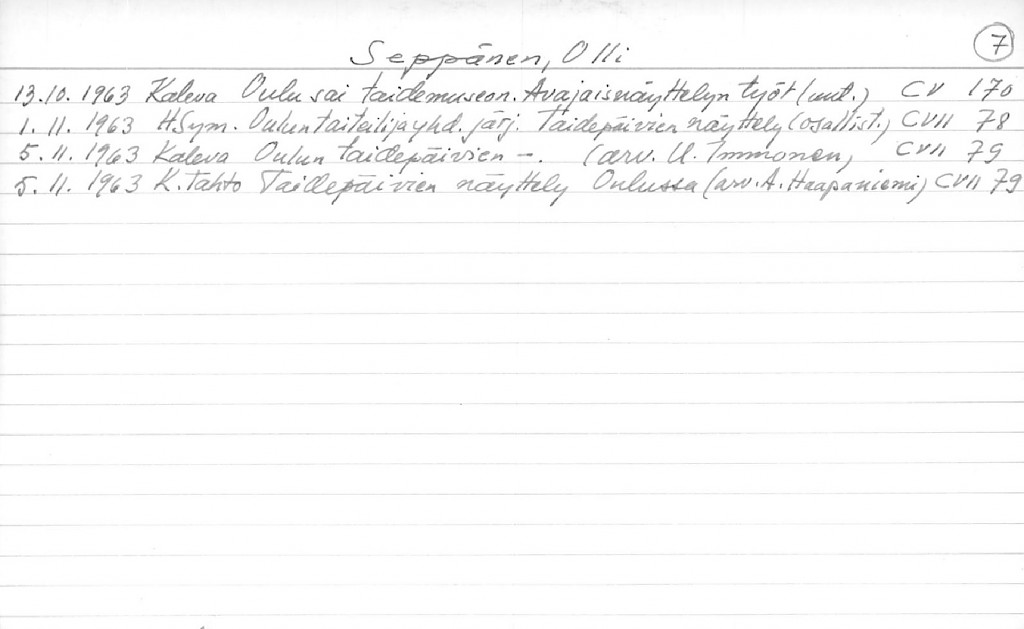 7
Seppänen, Olli
13.10. 1963 Kaleva Oulu sai taidemuseon. Avajaisnäyttelyn työt (luet.) CV 170
1. 11. 1963 HSym. Oulun taiteilijayhd. järj. Taidepäivien näyttely (osallist.) CVII 78
5. 11. 1963 Kaleva Oulun taidepäivien -. (arv. U. Immonen) CVII 79
5. 11. 1963 K. Tahto Taidepäivien näyttely Oulussa (arv. A. Haapaniemi) CVII 79